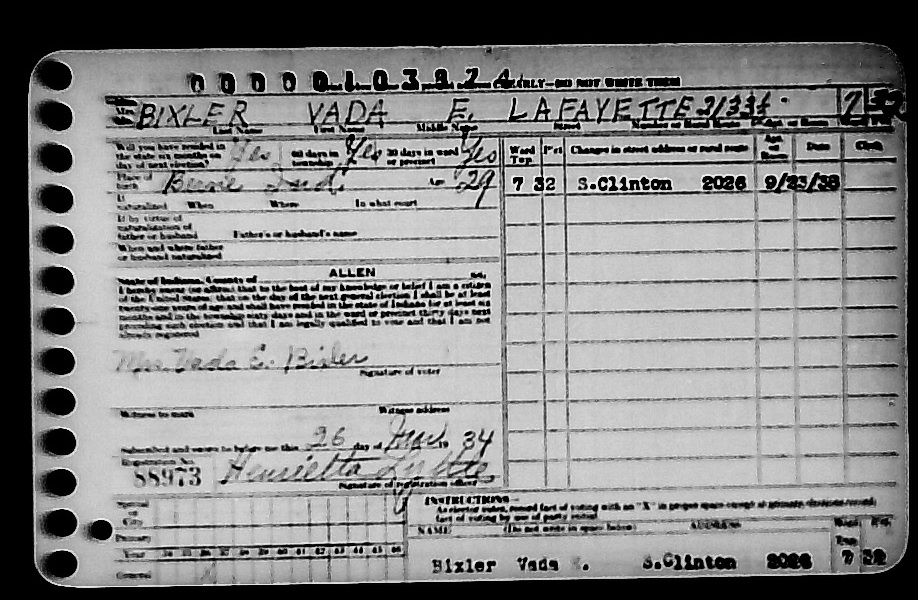 BIXLER VADA E. LAFAYETTE 2133½
Last Name First Name Middle Name Street Number or Rural Route
Will you have resided in the state six months on day of next election? Yes 60 days in township? Yes 30 days in ward or precinct Yes
Place of birth Berne Ind. Age 29
If naturalized When Where In what court
If by virtue of naturalization of father or husband Father's or husband's name
When and where father or husband naturalized
State of Indiana, County of ALLEN ss.
I hereby swear (or affirm) that to the best of my knowledge or belief I am a citizen
of the United States; that on the day of the next general election I shall be at least
twenty-one years of age and shall have resided in the state of Indiana for at least six
months and in the township sixty days and in the ward or precinct thirty days next
preceding such election and that I am legally qualified to vote and that I am not
already registered
Mrs. Vada E. Bixler
Signature of voter
Witness to mark Witness address
Subscribed and sworn to before me this 26 day of 19 34
Registration No.
88973 Henrietta
Signature of registration officer
Ward Twp. Pct Changes in street address or rural route Apt. or Room Date Clerk
7 32 S.Clinton 2026 9/23/38
City
Primary
Year
General
INSTRUCTIONS
As elector votes, record fact of voting with an "X" in proper space except at primary elections record
fact of voting by use of party voted
NAME (Do not write in space below) ADDRESS Ward Twp. Pct.
Bixler Vada E. S.Clinton 2026 7 32